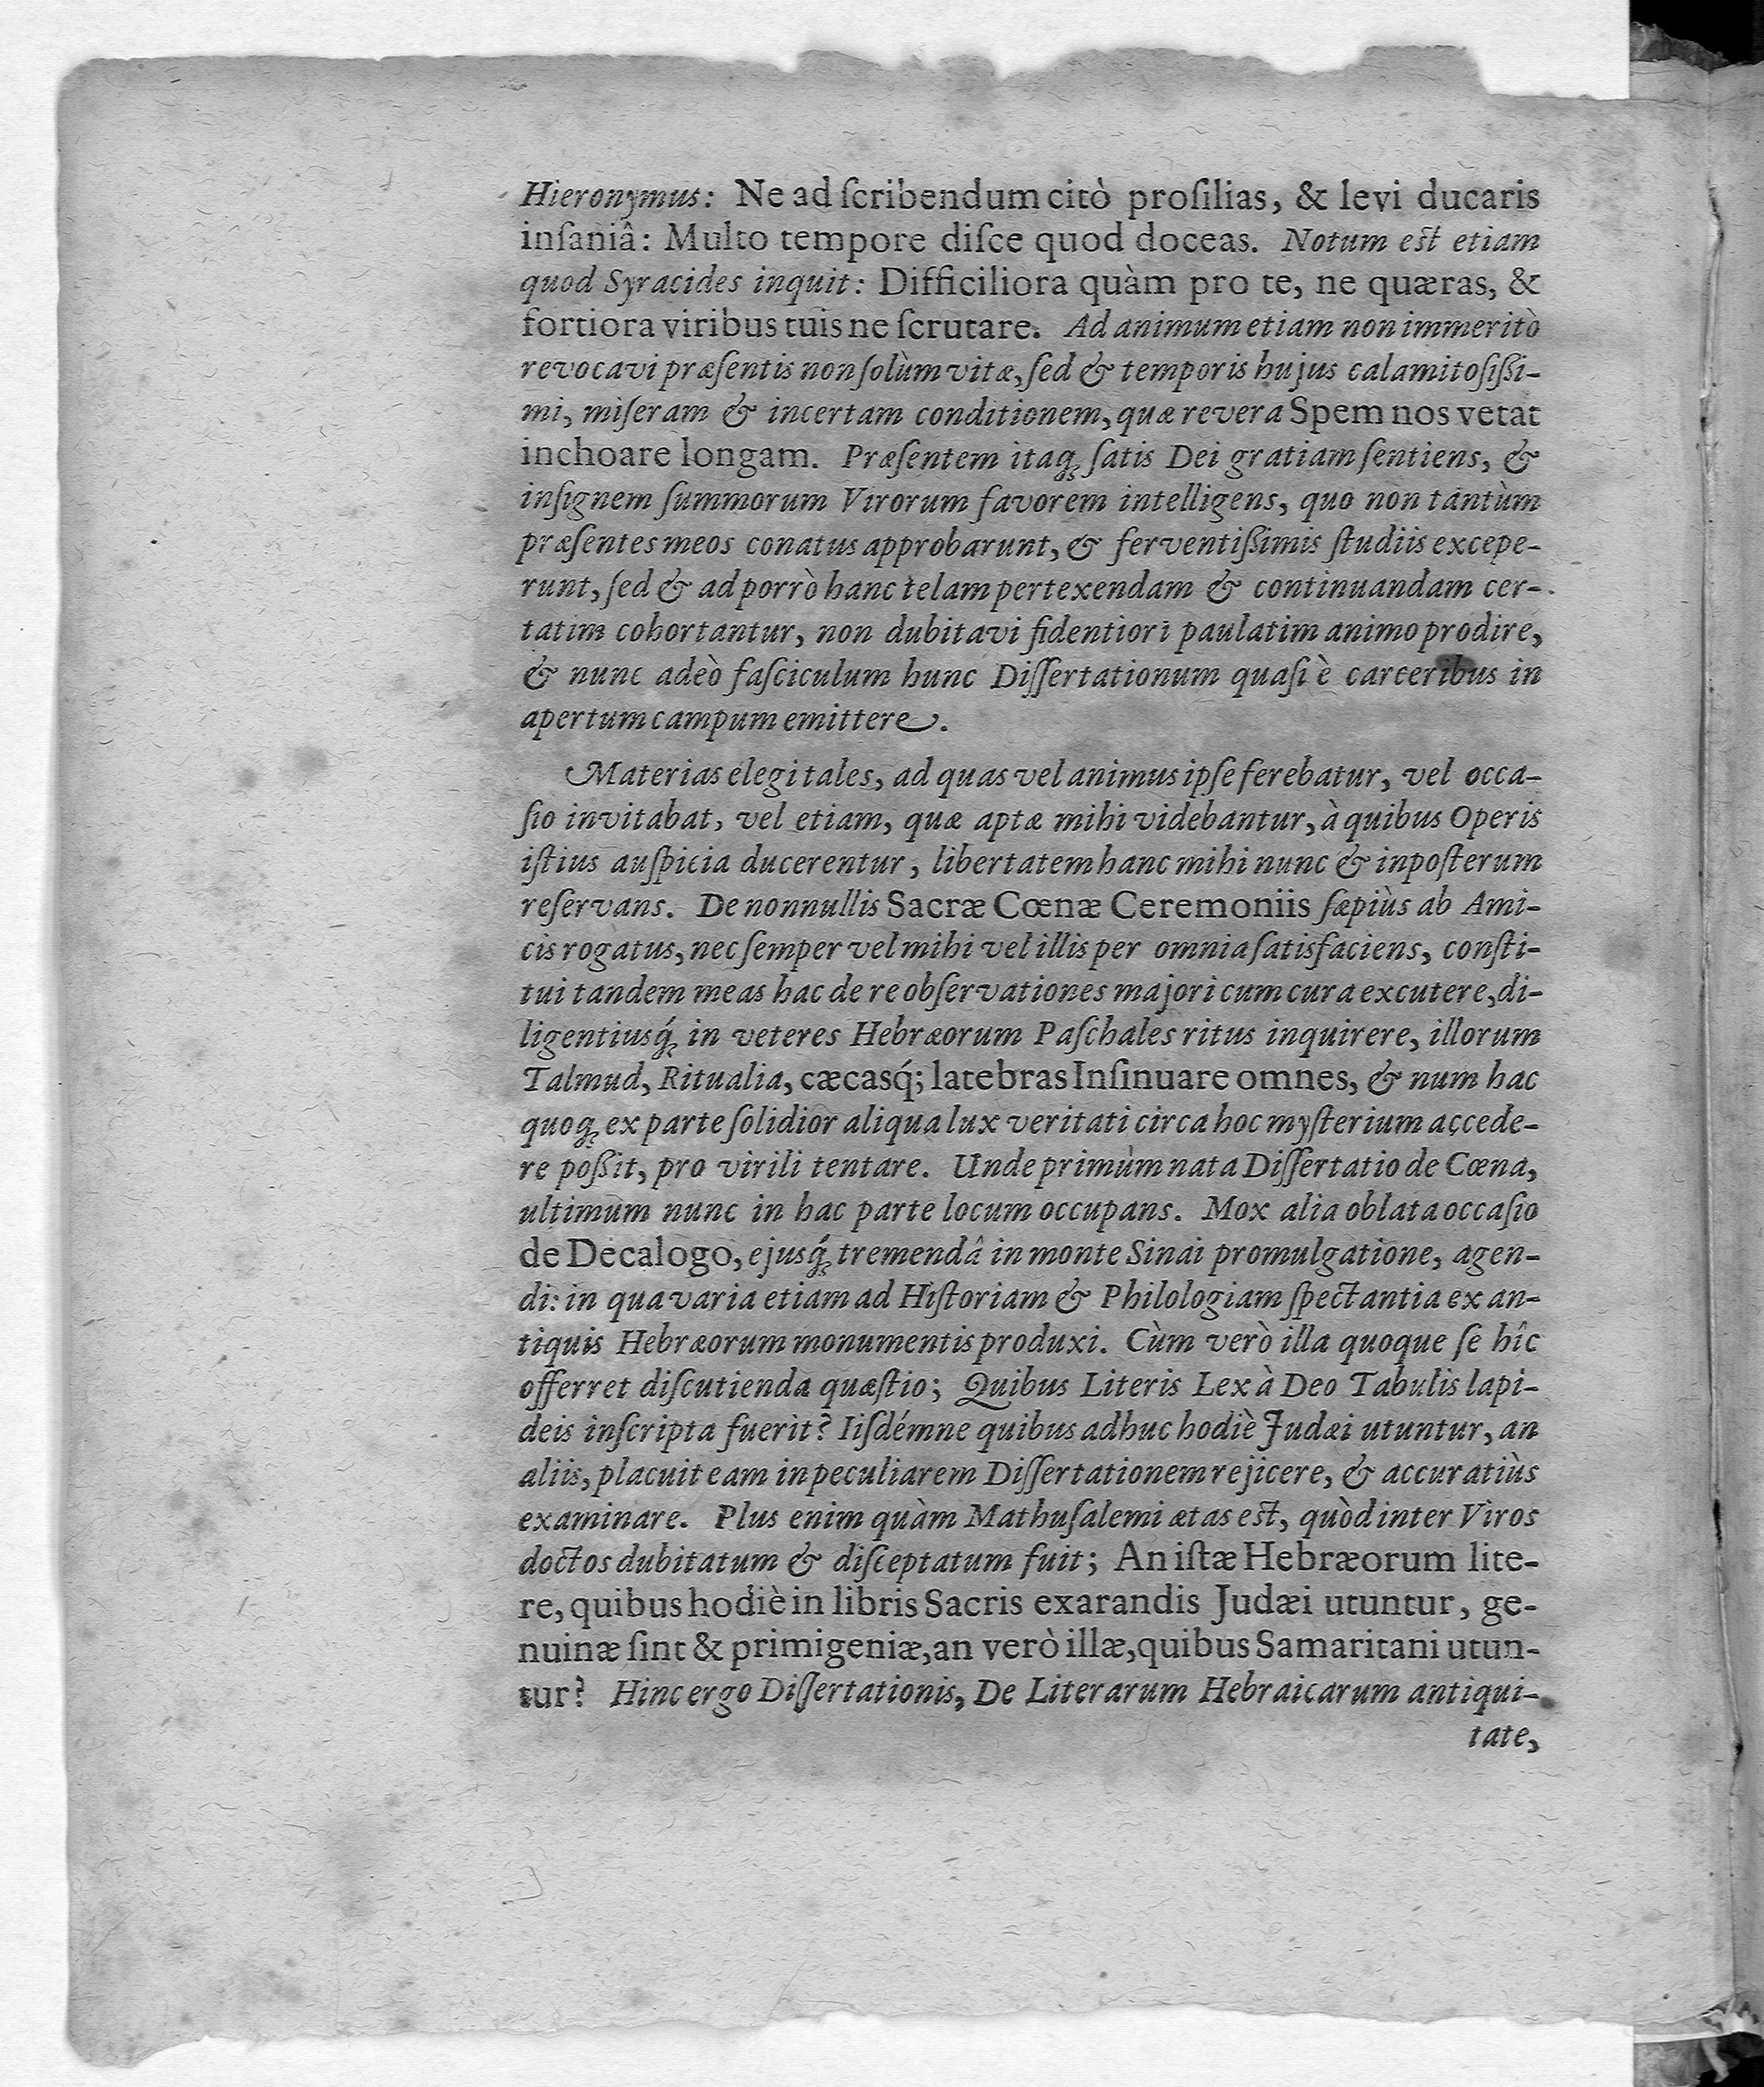 Hieronymus: Ne ad ſcribendum citò proſilias, & levi ducaris
inſaniâ: Multo tempore diſce quod doceas. Notum eſt etiam
quod Syracides inquit: Difficiliora quàm pro te, ne quæras, &
fortiora viribus tuis ne ſcrutare. Ad animum etiam non immeritò
revocavi præſentis non ſolùm vitæ, ſed & temporis hujus calamitoſiſſi-
mi, miſeram & incertam conditionem, quæ revera Spem nos vetat
inchoare longam. Præſentem itaq; ſatis Dei gratiam ſentiens, &
inſignem ſummorum Virorum favorem intelligens, quo non tantùm
præſentes meos conatus approbarunt, & ferventiſſimis ſtudiis excepe-
runt, ſed & ad porrò hanc telam pertexendam & continuandam cer-
tatim cohortantur, non dubitavi fidentiori paulatim animo prodire,
& nunc adeò faſciculum hunc Diſſertationum quaſi è carceribus in
apertum campum emittere.
Materias elegi tales, ad quas vel animus ipſe ferebatur, vel occa-
ſio invitabat, vel etiam, quæ aptæ mihi videbantur, à quibus Operis
iſtius auſpicia ducerentur, libertatem hanc mihi nunc & inpoſterum
reſervans. De nonnullis Sacræ Cœnæ Ceremoniis ſæpiùs ab Ami-
cis rogatus, nec ſemper vel mihi vel illis per omnia ſatisfaciens, conſti-
tui tandem meas hac de re obſervationes majori cum cura excutere, di-
ligentiusq́; in veteres Hebræorum Paſchales ritus inquirere, illorum
Talmud, Ritualia, cæcasq́; latebras Inſinuare omnes, & num hac
quoq; ex parte ſolidior aliqua lux veritati circa hoc myſterium accede-
re poſſit, pro virili tentare. Unde primùm nata Diſſertatio de Cœna,
ultimum nunc in hac parte locum occupans. Mox alia oblata occaſio
de Decalogo, ejusq́; tremendâ in monte Sinai promulgatione, agen-
di: in qua varia etiam ad Hiſtoriam & Philologiam ſpectantia ex an-
tiquis Hebræorum monumentis produxi. Cùm verò illa quoque ſe hîc
offerret diſcutienda quæſtio; Quibus Literis Lex à Deo Tabulis lapi-
deis inſcripta fuerit? Iiſdémne quibus adhuc hodiè Judæi utuntur, an
aliis, placuit eam in peculiarem Diſſertationem rejicere, & accuratiùs
examinare. Plus enim quàm Mathuſalemi ætas eſt, quòd inter Viros
doctos dubitatum & diſceptatum fuit; An iſtæ Hebræorum lite-
re, quibus hodiè in libris Sacris exarandis Judæi utuntur, ge-
nuinæ ſint & primigeniæ, an verò illæ, quibus Samaritani utun-
tur? Hinc ergo Diſſertationis, De Literarum Hebraicarum antiqui-
tate,